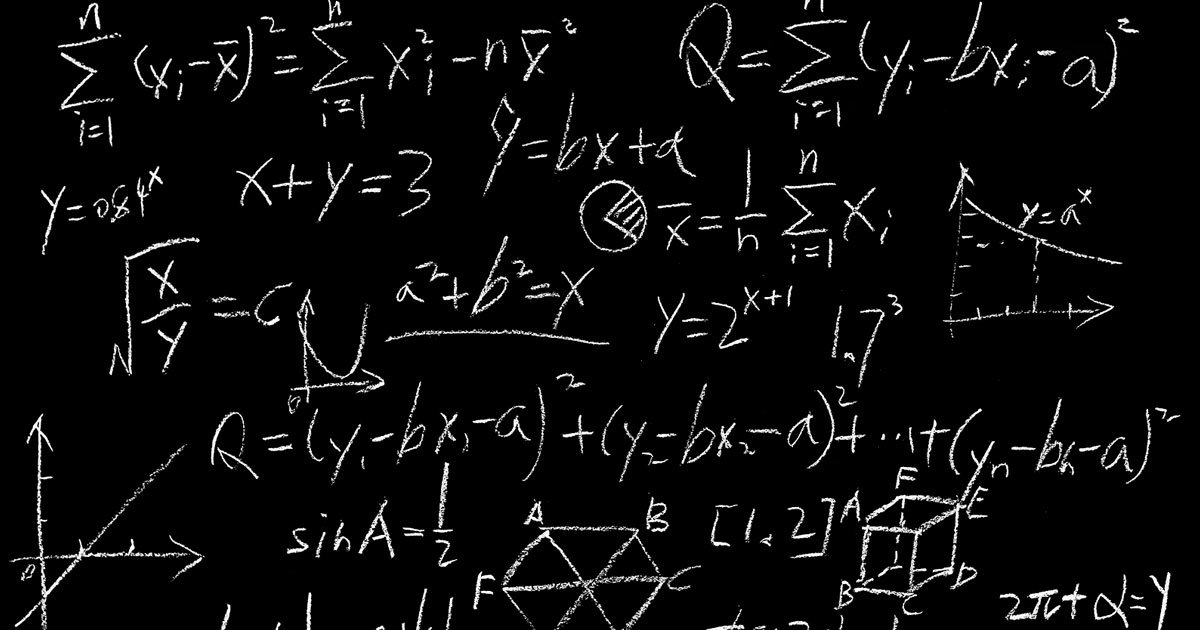 $\sum_{i=1}^{n} (x_i - \overline{x})^2 = \sum_{i=1}^{n} x_i^2 - n\overline{x}^2$
$Q = \sum_{i=1}^{n} (y_i - bx_i - a)^2$
$\hat{y} = bx + a$
$y = 0.84^x$
$x + y = 3$
$\overline{x} = \frac{1}{n} \sum_{i=1}^{n} x_i$
$y = a^x$
$\sqrt{\frac{x}{y}} = c$
$a^2 + b^2 = x$
$y = 2^{x+1}$
$1.7^3$
0
$Q = (y_1 - bx_1 - a)^2 + (y_2 - bx_2 - a)^2 + \cdots + (y_n - bx_n - a)^2$
0
$\sin A = \frac{1}{2}$
A B
F C
[1, 2]
F
A E
B D
C
$2\pi + \alpha = y$